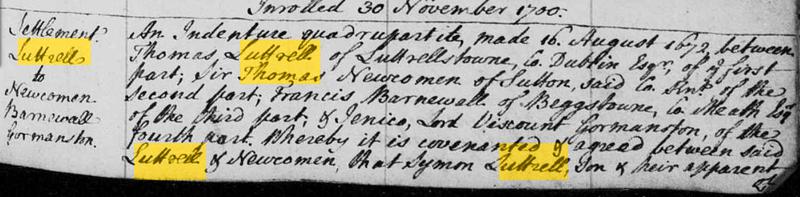 Inrolled 30 November 1700.
Settlement.
Luttrell
to
Newcomen
Barnewall
Gormanston.
An Indenture quadrupartite, made 16. August 1672, between
Thomas Luttrell of Luttrellstowne, Co. Dublin Esqr., of ye first
part; Sir Thomas Newcomen of Sutton, said Co. Knt. of the
Second part; Francis Barnewall of Beggstowne, Co. Meath Esqr
of the third part, & Jenico, Lord Viscount Gormanston, of the
fourth part. Whereby it is covenanted & agreed between said
Luttrell & Newcomen, that Symon Luttrell, Son & heir apparent
of